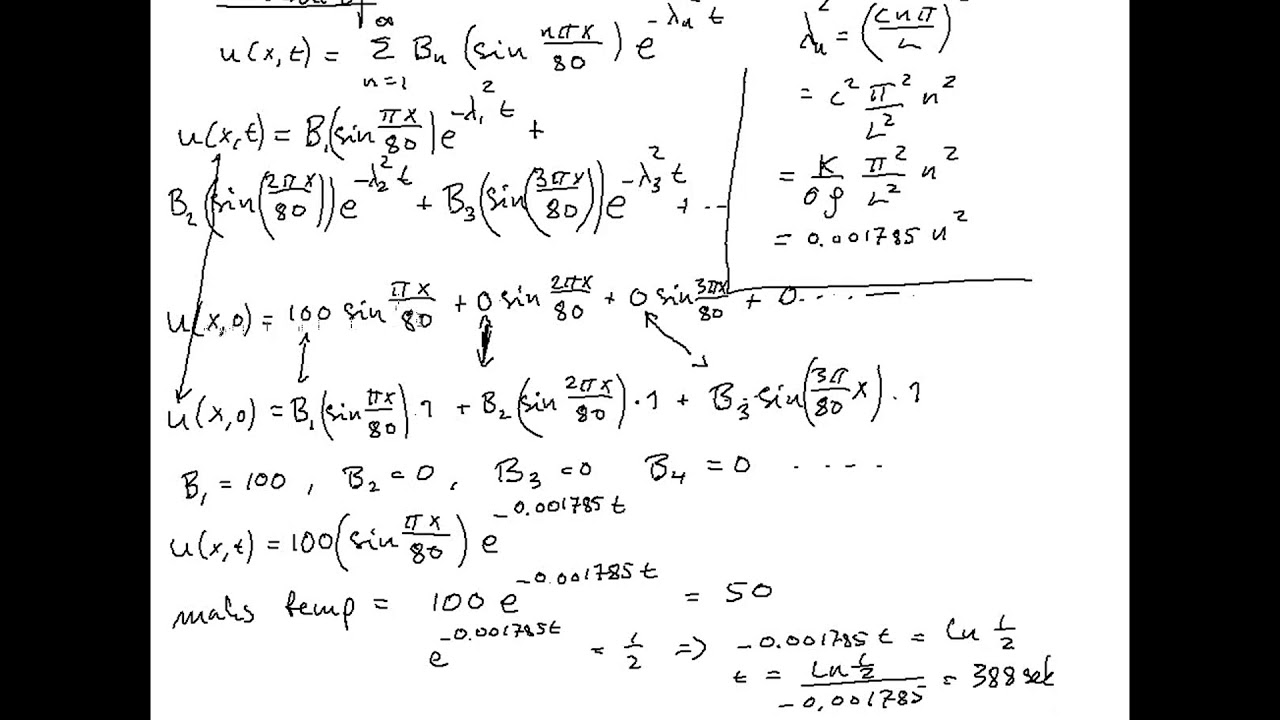 u(x,t) = Σ_{n=1}^{∞} B_n (sin nπx/80) e^{-λ_n² t}
λ_n² = (cnπ/L)²
= c² π²/L² n²
u(x,t) = B_1 (sin πx/80) e^{-λ_1² t} +
= K/σρ π²/L² n²
B_2 (sin(2πx/80)) e^{-λ_2² t} + B_3 (sin(3πx/80)) e^{-λ_3² t} + ...
= 0.001785 n²
u(x,0) = 100 sin πx/80 + 0 sin 2πx/80 + 0 sin 3πx/80 + 0.....
u(x,0) = B_1 (sin πx/80) · 1 + B_2 (sin 2πx/80) · 1 + B_3 sin(3π/80 x) · 1
B_1 = 100 , B_2 = 0 , B_3 = 0 B_4 = 0 ....
u(x,t) = 100 (sin πx/80) e^{-0.001785 t}
maks temp = 100 e^{-0.001785 t} = 50
e^{-0.001785t} = 1/2 => -0.001785 t = ln 1/2
t = ln 1/2 / -0,001785 = 388 sek